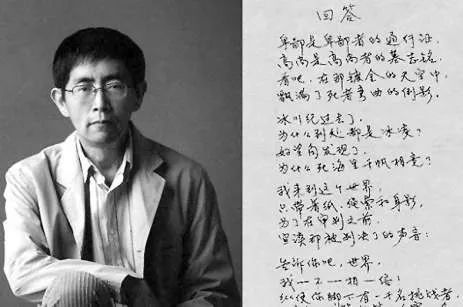 回答
卑鄙是卑鄙者的通行证，
高尚是高尚者的墓志铭。
看吧，在那镀金的天空中，
飘满了死者弯曲的倒影。
冰川纪过去了，
为什么到处都是冰凌？
好望角发现了，
为什么死海里千帆相竞？
我来到这个世界，
只带着纸、绳索和身影，
为了在审判之前，
宣读那被判决了的声音：
告诉你吧，世界，
我—不—相—信！
纵使你脚下有一千名挑战者，